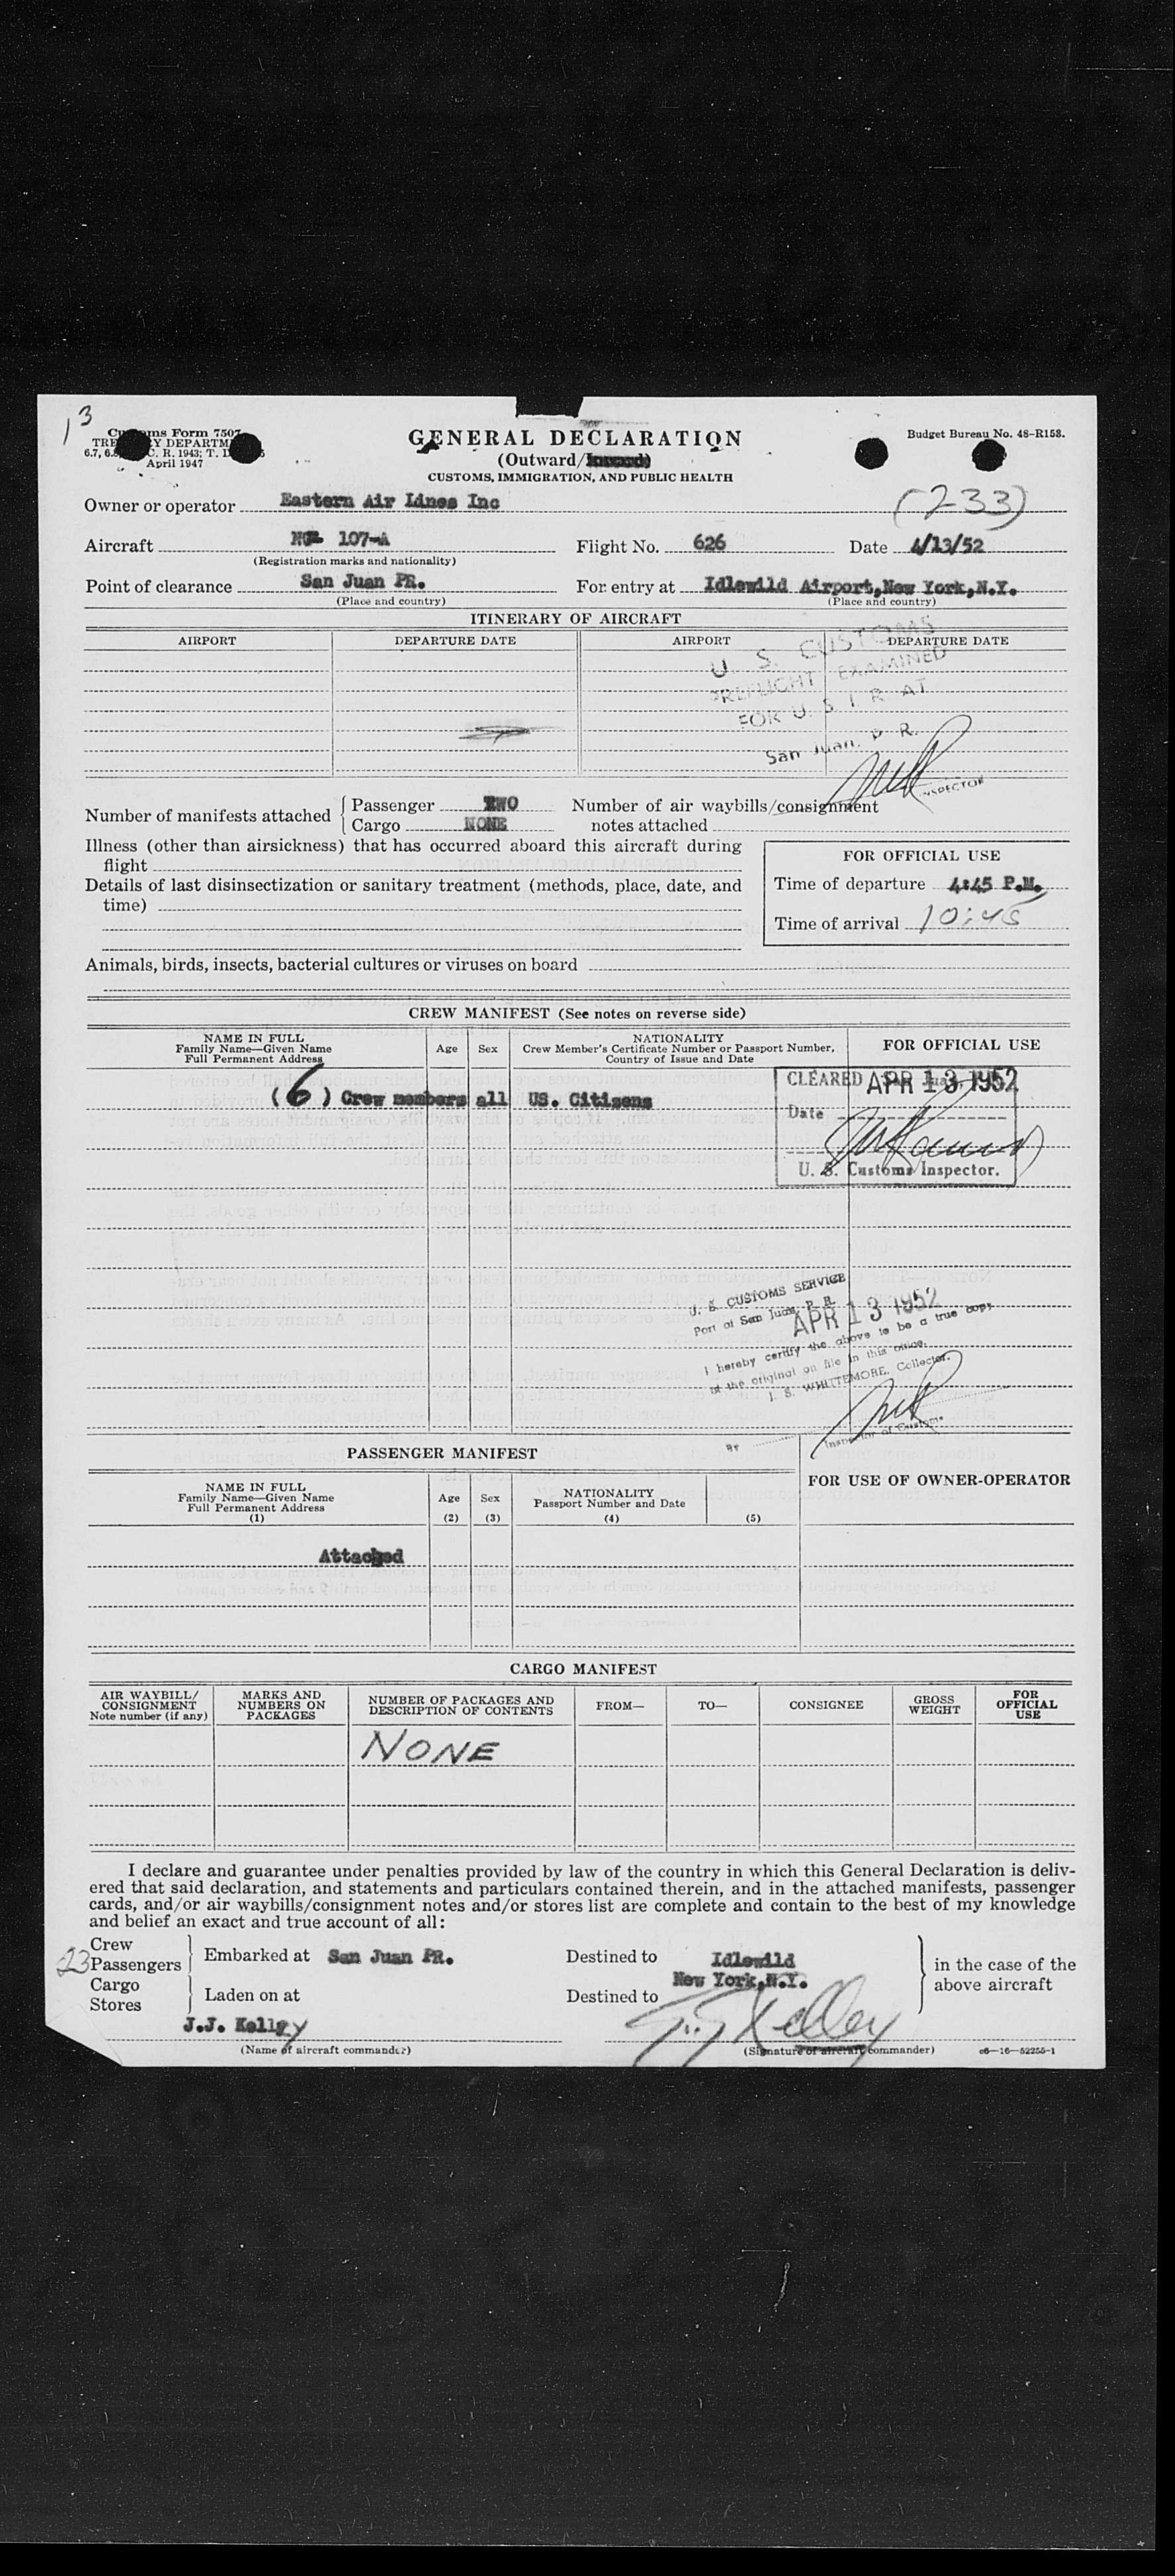 13
Customs Form 7507
TREASURY DEPARTMENT
C. R. 1943; T. D.
April 1947
GENERAL DECLARATION
(Outward/Inward)
CUSTOMS, IMMIGRATION, AND PUBLIC HEALTH
Budget Bureau No. 48-R158.
Owner or operator Eastern Air Lines Inc
(233)
Aircraft 107-A Flight No. 626 Date 4/13/52
(Registration marks and nationality)
Point of clearance San Juan PR. For entry at Idlewild Airport,New York,N.Y.
(Place and country) (Place and country)
ITINERARY OF AIRCRAFT
AIRPORT DEPARTURE DATE AIRPORT DEPARTURE DATE
U. S. CUSTOMS
PREFLIGHT EXAMINED
FOR U. S. I. R. AT
San Juan, P. R.
INSPECTOR
Number of manifests attached Passenger TWO Number of air waybills/consignment
Cargo NONE notes attached
Illness (other than airsickness) that has occurred aboard this aircraft during
flight
FOR OFFICIAL USE
Details of last disinsectization or sanitary treatment (methods, place, date, and
time)
Time of departure 4:45 P.M.
Time of arrival 10:45
Animals, birds, insects, bacterial cultures or viruses on board
CREW MANIFEST (See notes on reverse side)
NAME IN FULL
Family Name—Given Name
Full Permanent Address
Age Sex
NATIONALITY
Crew Member's Certificate Number or Passport Number,
Country of Issue and Date
FOR OFFICIAL USE
(6) Crew members all US. Citizens
CLEARED APR 13 1952
Date
U. S. Customs Inspector.
U. S. CUSTOMS SERVICE
Port of San Juan, P. R.
APR 13 1952
I hereby certify the above to be a true copy
of the original on file in this office.
J. S. WHITTEMORE, Collector.
By
Inspector of Customs
PASSENGER MANIFEST
FOR USE OF OWNER-OPERATOR
NAME IN FULL
Family Name—Given Name
Full Permanent Address
(1)
Age
(2)
Sex
(3)
NATIONALITY
Passport Number and Date
(4) (5)
Attached
CARGO MANIFEST
AIR WAYBILL/
CONSIGNMENT
Note number (if any)
MARKS AND
NUMBERS ON
PACKAGES
NUMBER OF PACKAGES AND
DESCRIPTION OF CONTENTS
FROM— TO— CONSIGNEE
GROSS
WEIGHT
FOR
OFFICIAL
USE
NONE
I declare and guarantee under penalties provided by law of the country in which this General Declaration is deliv-
ered that said declaration, and statements and particulars contained therein, and in the attached manifests, passenger
cards, and/or air waybills/consignment notes and/or stores list are complete and contain to the best of my knowledge
and belief an exact and true account of all:
Crew
23 Passengers
Cargo
Stores
Embarked at San Juan PR.
Laden on at
Destined to Idlewild
New York,N.Y.
Destined to
in the case of the
above aircraft
J.J. Kelly
J. J. Kelley
(Name of aircraft commander) (Signature of aircraft commander) c6—16—52255-1